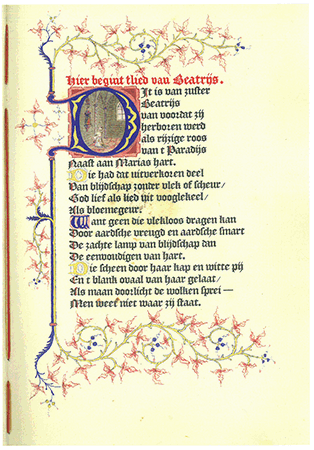 Hier begint tlied van Beatrijs.
DIt is van zuster
Beatrijs
van voordat zij
herboren werd
als rijzige roos
van t Paradijs
Naast aan Marias hart.
Die had dat uitverkoren deel
Van blijdschap zonder vlek of scheur/
God lief als lied uit vooglekeel/
Als bloemegeur.
Want geen die vlekloos dragen kan
Door aardsche vreugd en aardsche smart
De zachte lamp van blijdschap dan
De eenvoudigen van hart.
Die scheen door haar kap en witte pij
En t blank ovaal van haar gelaat/
Als maan doorlicht de wolken sprei —
Men weet niet waar zij staat.